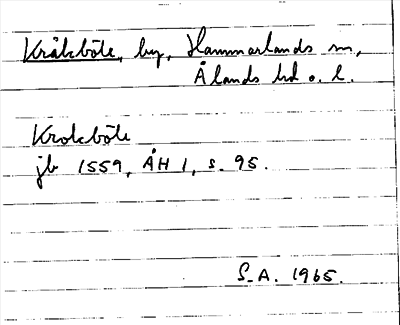 Kråkböte, by, Hammarlands sn,
Ålands hd o. l.
Krokböte
jb 1559, ÅH 1, s. 95.
S.A. 1965.